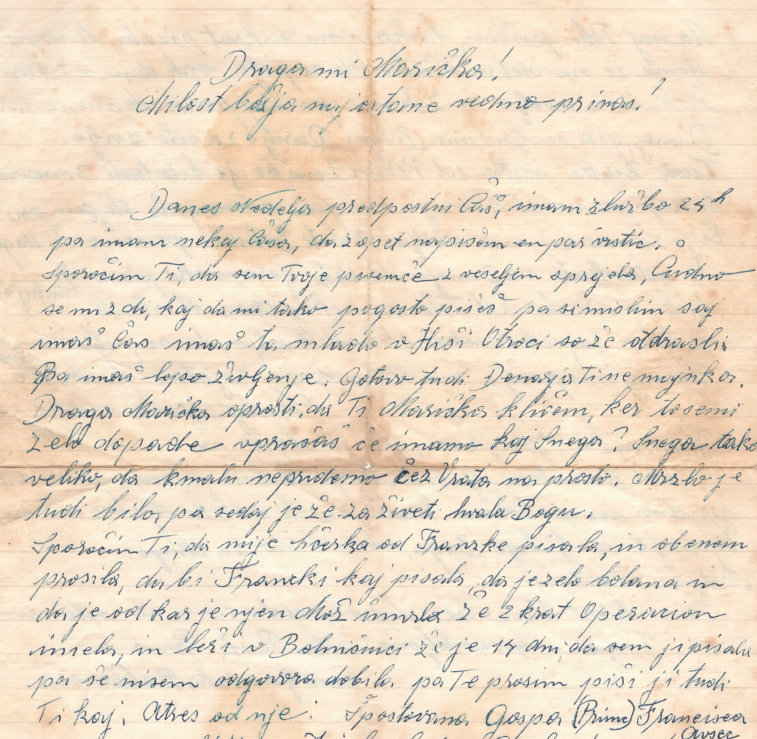 Draga mi Marička!
Milost božja naj ostane vedno pri nas!
Danes Nedelja predpostni Čas, imam službo 24 h
pa imam nekaj Časa, da zopet napisem en par vrstic.
Sporočim Ti, da sem Tvoje pisemce z veseljem sprejela, Čudno
se mi zdi, kaj da mi tako pogosto pišeš pa si mislim saj
imaš čas imaš ta mlado v Hiši Otroci so že oddrasli
Pa imaš lepo življenje. Gotovo tudi Denarja Ti ne majnka.
Draga Maričko oprosti, da Ti Maričko kličem, ker to se mi
zelo dopade vprašaš če imamo kaj Snega? Snega tako
veliko, da kmalu nepridemo čez Vrata na prosto. Mrzlo je
tudi bilo, pa sedaj je že za živeti hvala Bogu.
Sporočim Ti, da mi je hčerka od Franzke pisala, in obenem
prosila, da bi Francki kaj pisala, da je zelo bolana in
da je od kar je njen Mož umrla že 2 krat Operacion
imela, in leži v Bolnišnici že je 14 dni, da sem ji pisala
pa še nisem odgovora dobila. pa Te prosim piši ji tudi
Ti kaj. Atres od nje: Spostovana Gospa (Prime) Francisca
Avsec